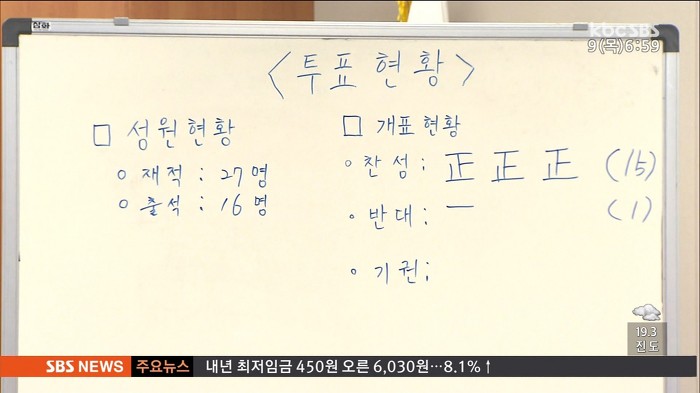 잠화
kbc SBS
9(목)6:59
<투표 현황>
□ 성원현황
○ 재적 : 27명
○ 출석 : 16명
□ 개표현황
○ 찬성 : 正 正 正 (15)
○ 반대 : 一 (1)
○ 기권 :
19.3
진도
SBS NEWS 주요뉴스 내년 최저임금 450원 오른 6,030원…8.1%↑